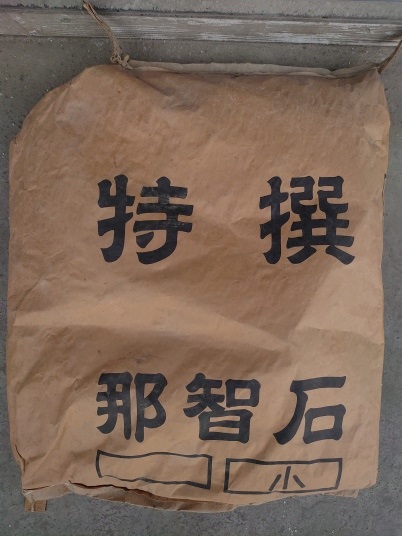 特撰
那智石
小